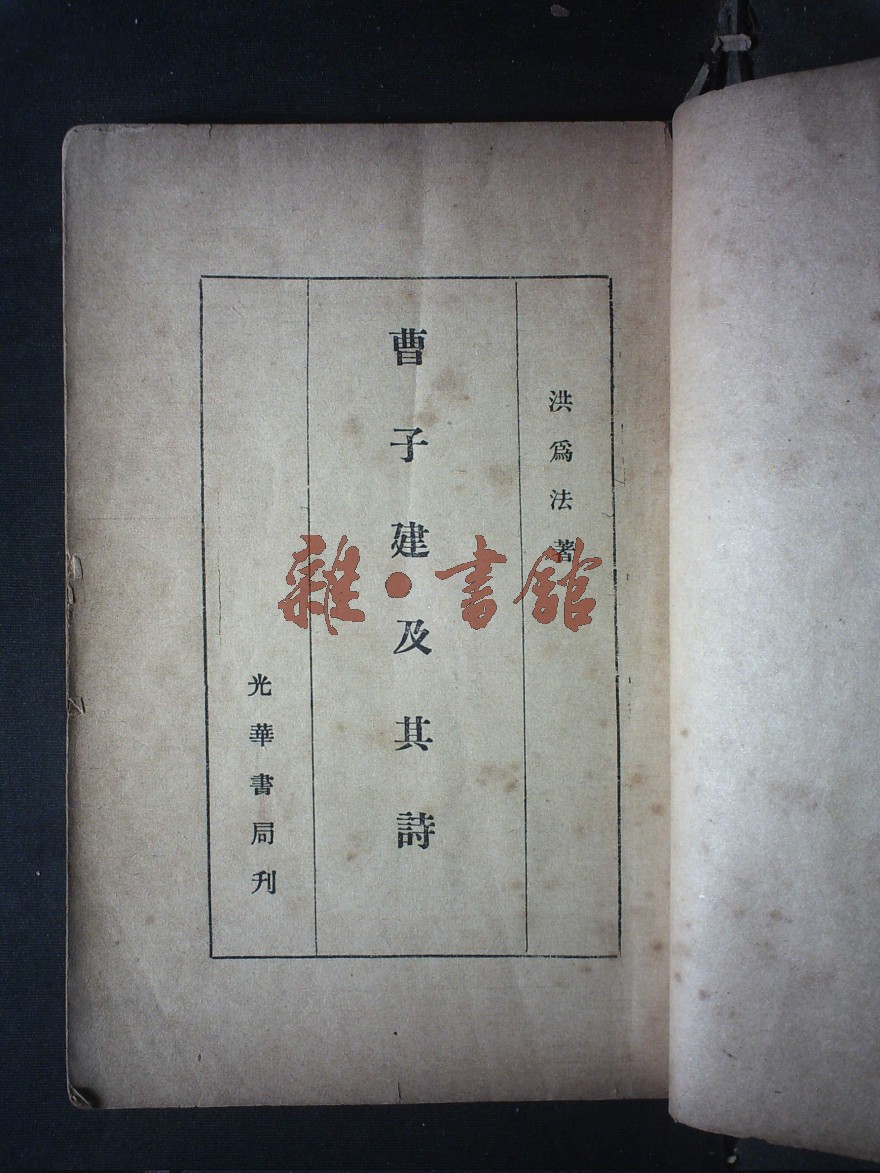 洪爲法著
曹子建及其詩
光華書局刋
雜·書館